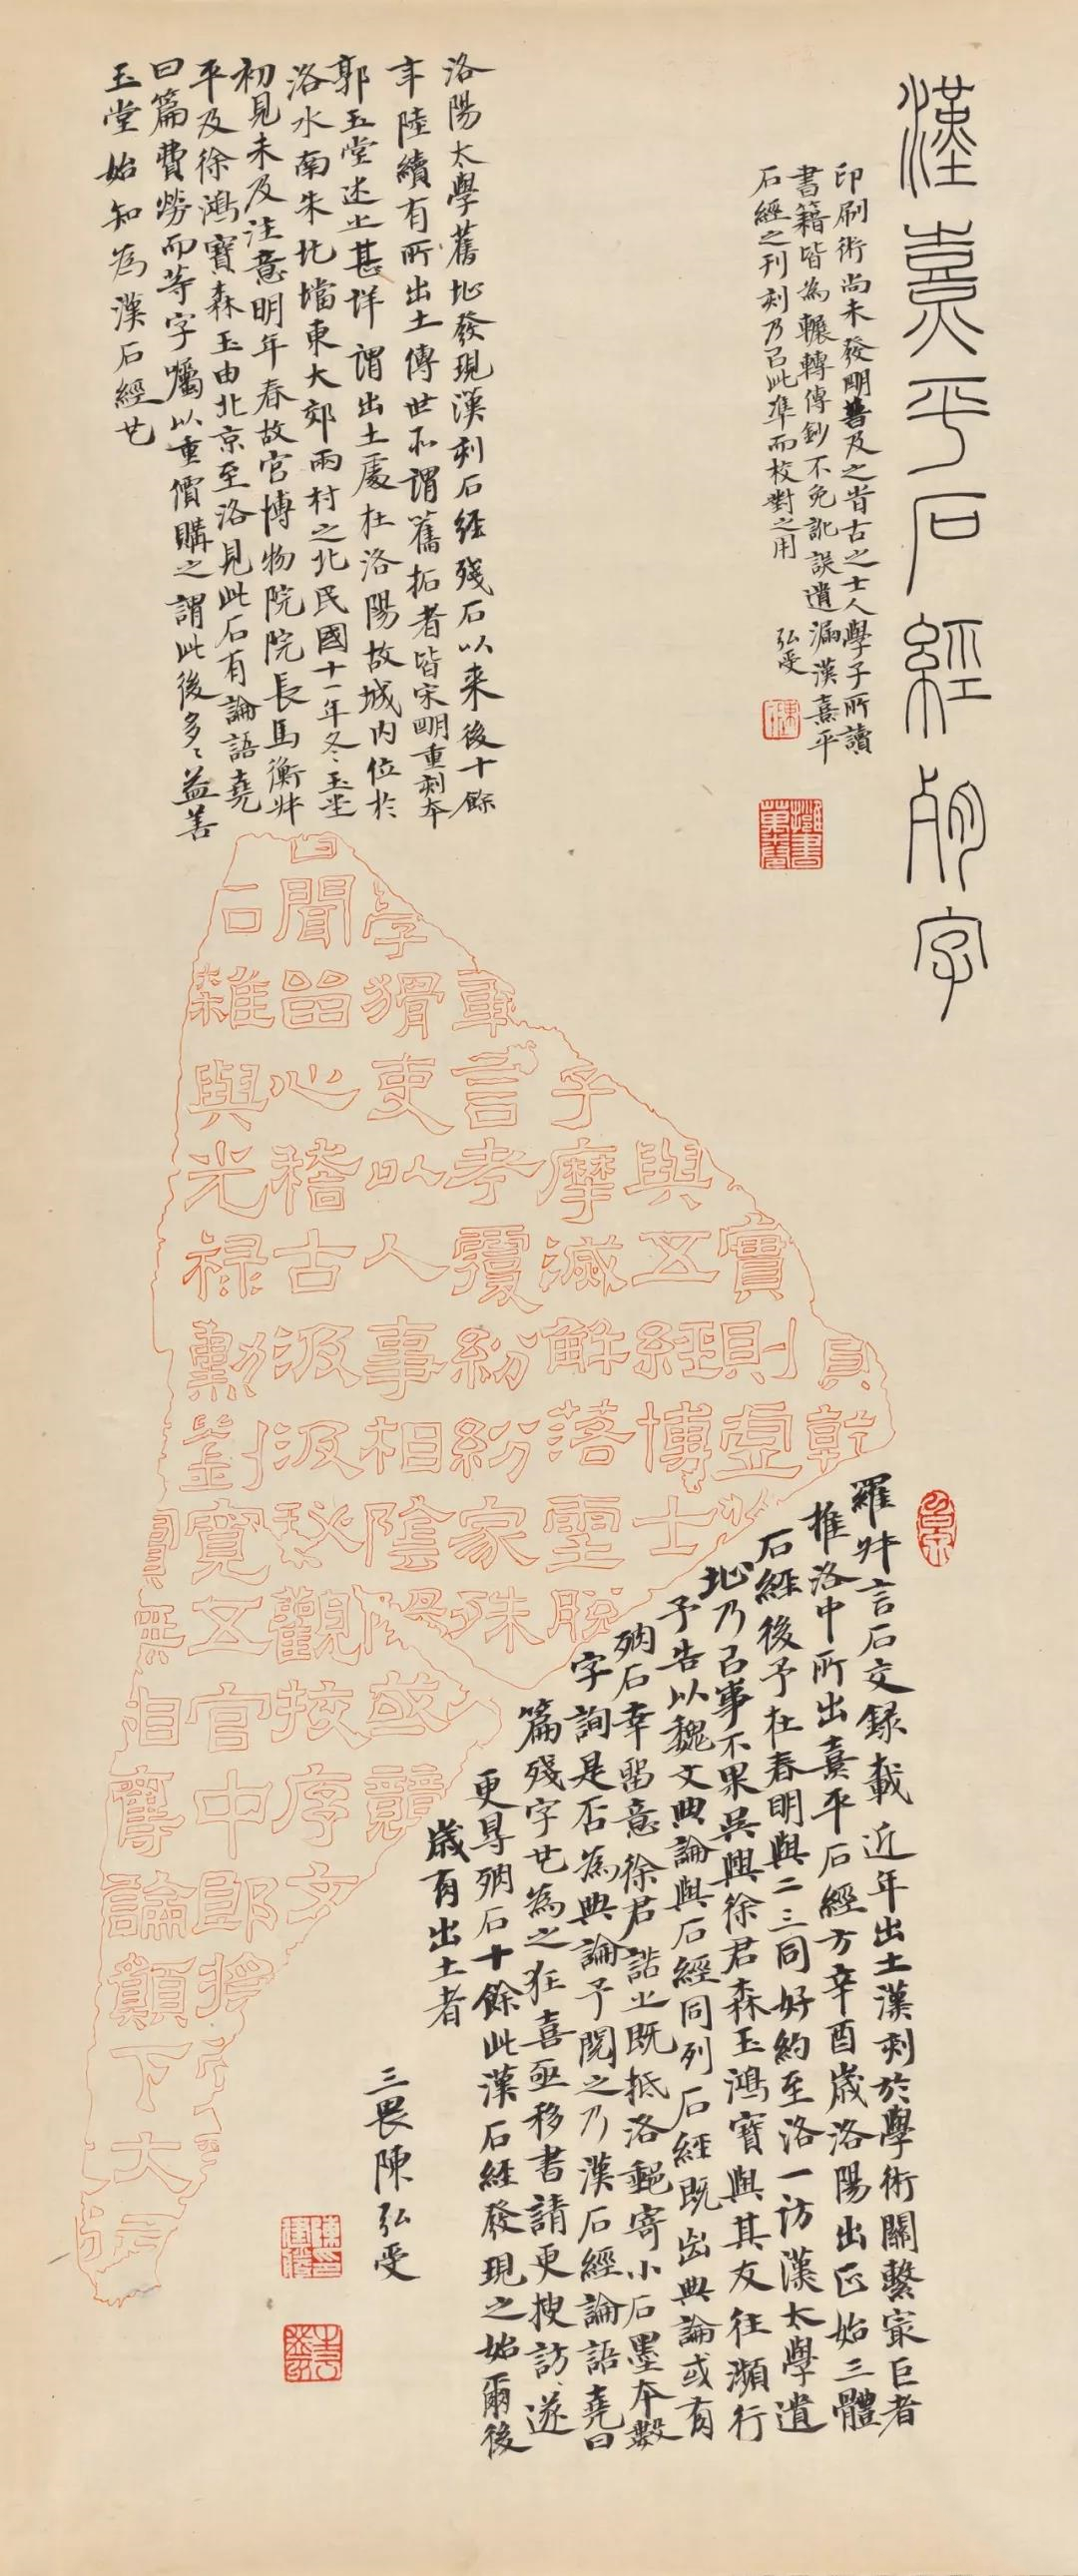 漢熹平石經殘字
印刷術尚未發明普及之前古之士人學子所讀
書籍皆為輾轉傳鈔不免訛誤遺漏漢熹平
石經之刊刻乃為此準而校對之用
弘受
洛陽太學舊址發現漢刻石經殘石以来後十餘
年陸續有所出土傳世所謂舊拓者皆宋明重刻本
郭玉堂述之甚详謂出土處在洛陽故城内位於
洛水南朱圪壋東大郊兩村之北民國十一年冬玉堂
初見未及注意明年春故宮博物院院長馬衡叔
平及徐鴻寶森玉由北京至洛見此石有論語堯
曰篇費勞而等字囑以重價購之謂此後多多益善
玉堂始知為漢石經也
羅叔言石交錄載近年出土漢刻於學術關繫冣巨者
推洛中所出熹平石經方辛酉歲洛陽出正始三體
石經後予在春明與二三同好約至洛一訪漢太學遺
址乃已事不果吳興徐君森玉鴻寶與其友往瀕行
予告以魏文典論與石經同列石經既出典論或有
殘石幸留意徐君諾之既抵洛郵寄小石墨本數
字詢是否為典論予閱之乃漢石經論語堯曰
篇殘字也為之狂喜亟移書請更搜訪遂
更尋殘石十餘此漢石經發現之始爾後
歲有出土者
三畏陳弘受
員乾
實則虛
與五經博士
子摩滅解落重脫
章言考覆紛紛家殊
學猾吏以人事相陰陽或競
聞留心稽古汲汲秘觀按序文
石雜與光祿勳劉寬五官中郎將
無相奪論顛下大